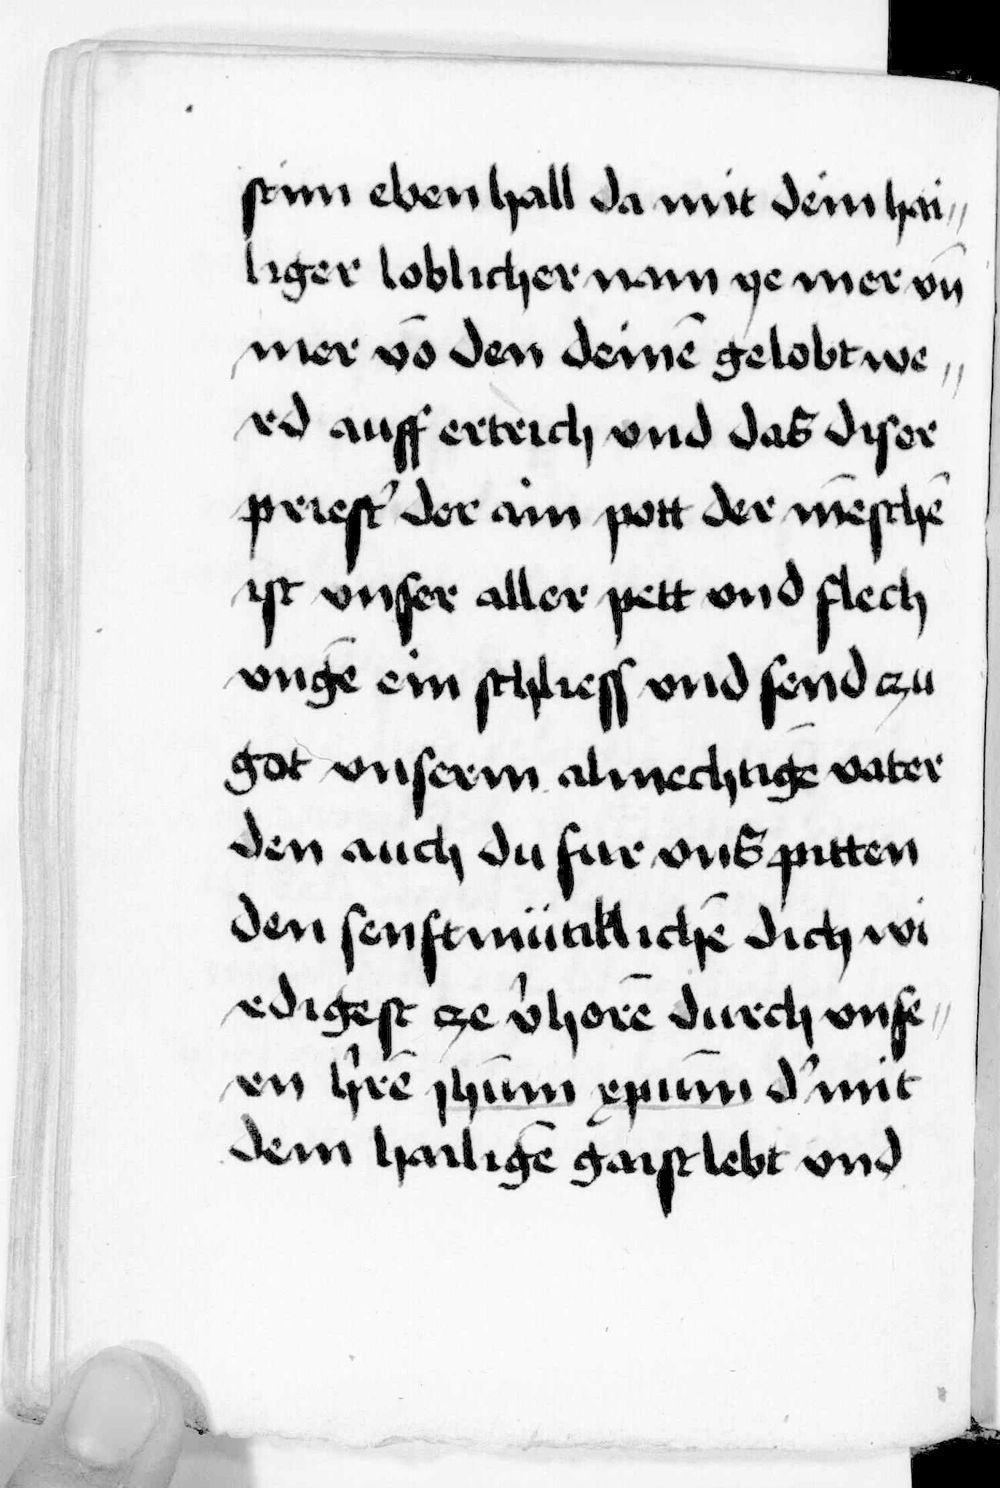 stim eben hall da mit dein hai〃
liger loblicher nam ye mer vn̄
mer vō den deinē gelobt we〃
rd auff ertrich vnd daß diser
priest' der ain pott der mēschē
ist vnser aller pett vnd flech
vngē ein schliess vnd send czu
got vnserm almechtigē vater
den auch du fur vnß pitten
den senftmütiklichē dich wi
rdigest cze v'horē durch vnse〃
rn h'rē jhūm xpūm d' mit
dem hailigē gaist lebt vnd